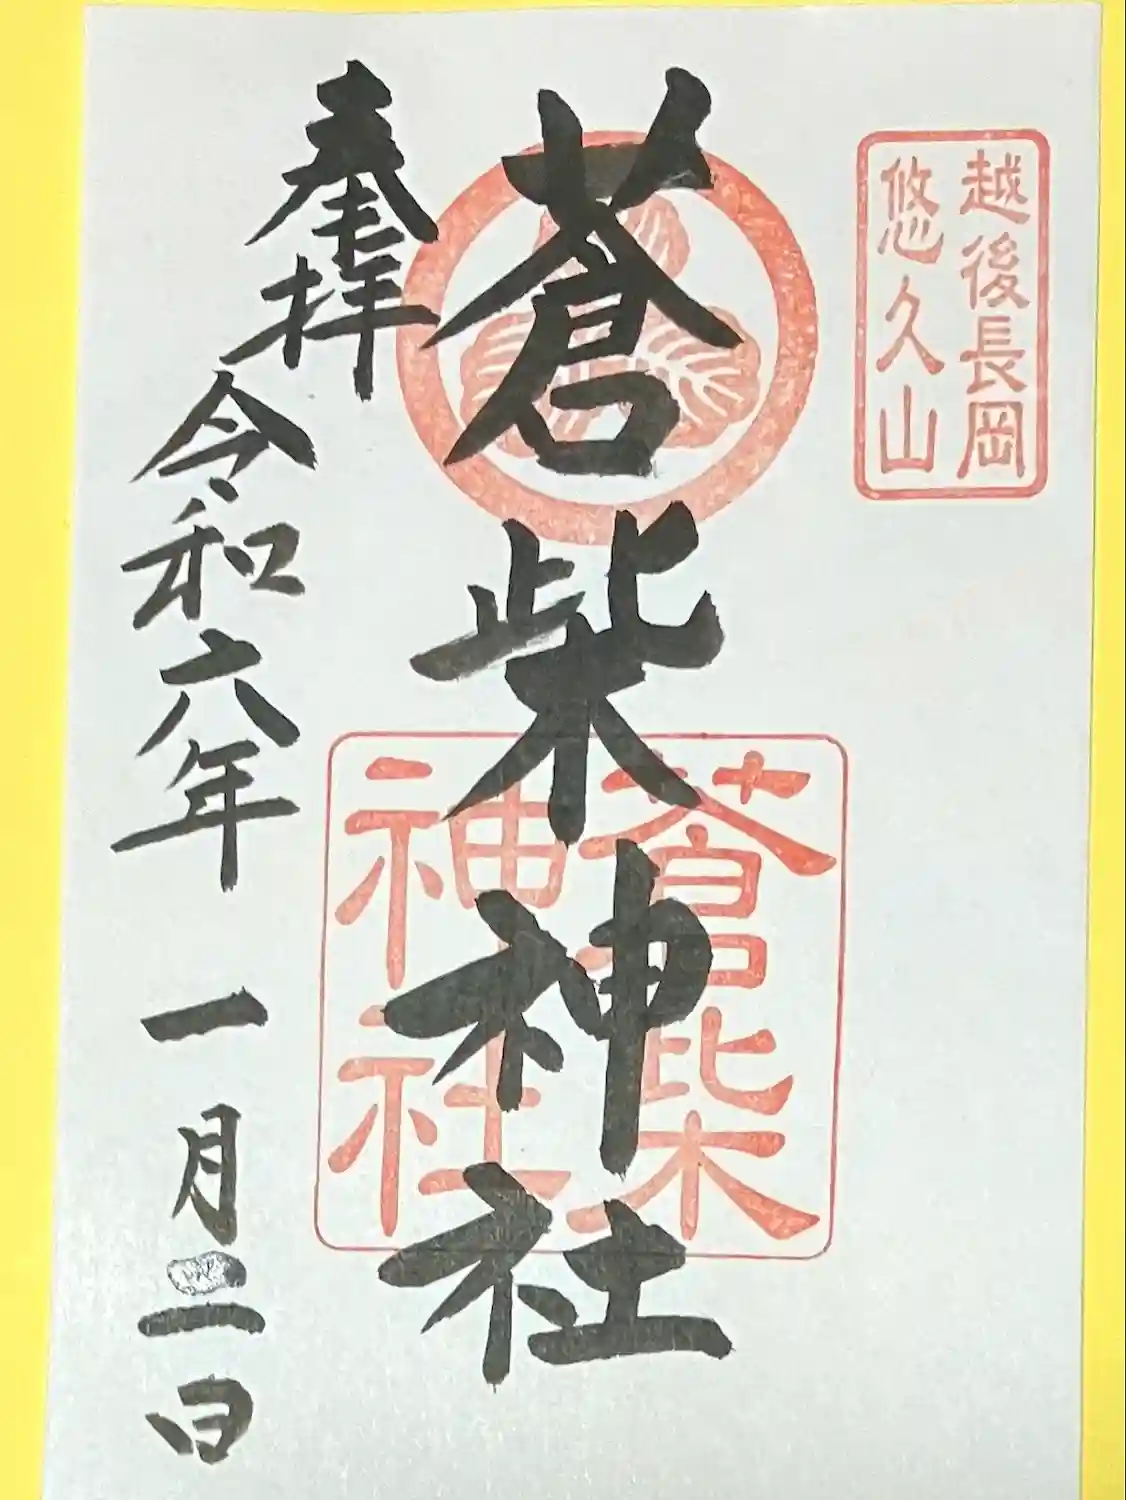 越後長岡
悠久山
蒼柴神社
蒼柴
神社
奉拝
令和六年一月二日